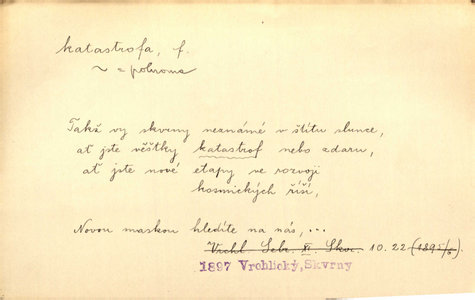 katastrofa, f.
~ = pohroma
Takž vy skvrny neznámé v štítu slunce,
ať jste věštky katastrof nebo zdaru,
ať jste nové etapy ve rozvoji
kosmických říší,
Novou maskou hledíte na nás,...
Vrchl Sebr. XI. Skvr. 10. 22 (1895/6)
1897 Vrchlický, Skvrny